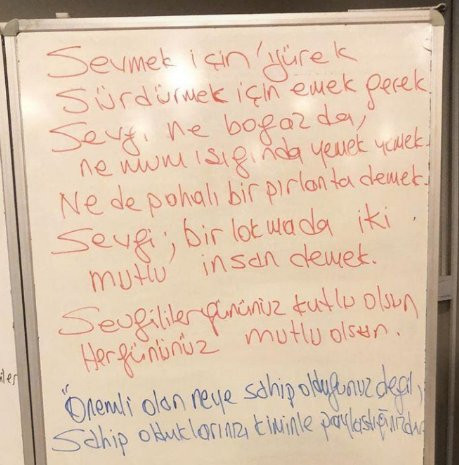 Sevmek için yürek
Sürdürmek için emek gerek
Sevgi, ne boğazda,
ne mum ışığında yemek yemek
Ne de pahalı bir pırlanta demek.
Sevgi; bir lokmada iki
mutlu insan demek.
Sevgililer gününüz kutlu olsun
Hergününüz mutlu olsun.
"Önemli olan neye sahip olduğunuz değil,
Sahip olduklarınızı kiminle paylaştığınızdır
iler